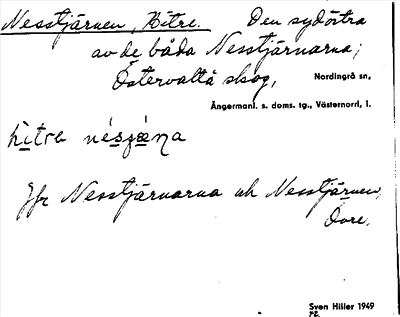 Nesstjärnen, Hitre. Den sydöstra
av de båda Nesstjärnarna;
Östervalta skog,
Nordingrå sn,
Ångermanl. s. doms. tg., Västernorrl. l.
hitre
Jfr Nesstjärnarna och Nesstjärnen,
Övre.
Sven Hiller 1949